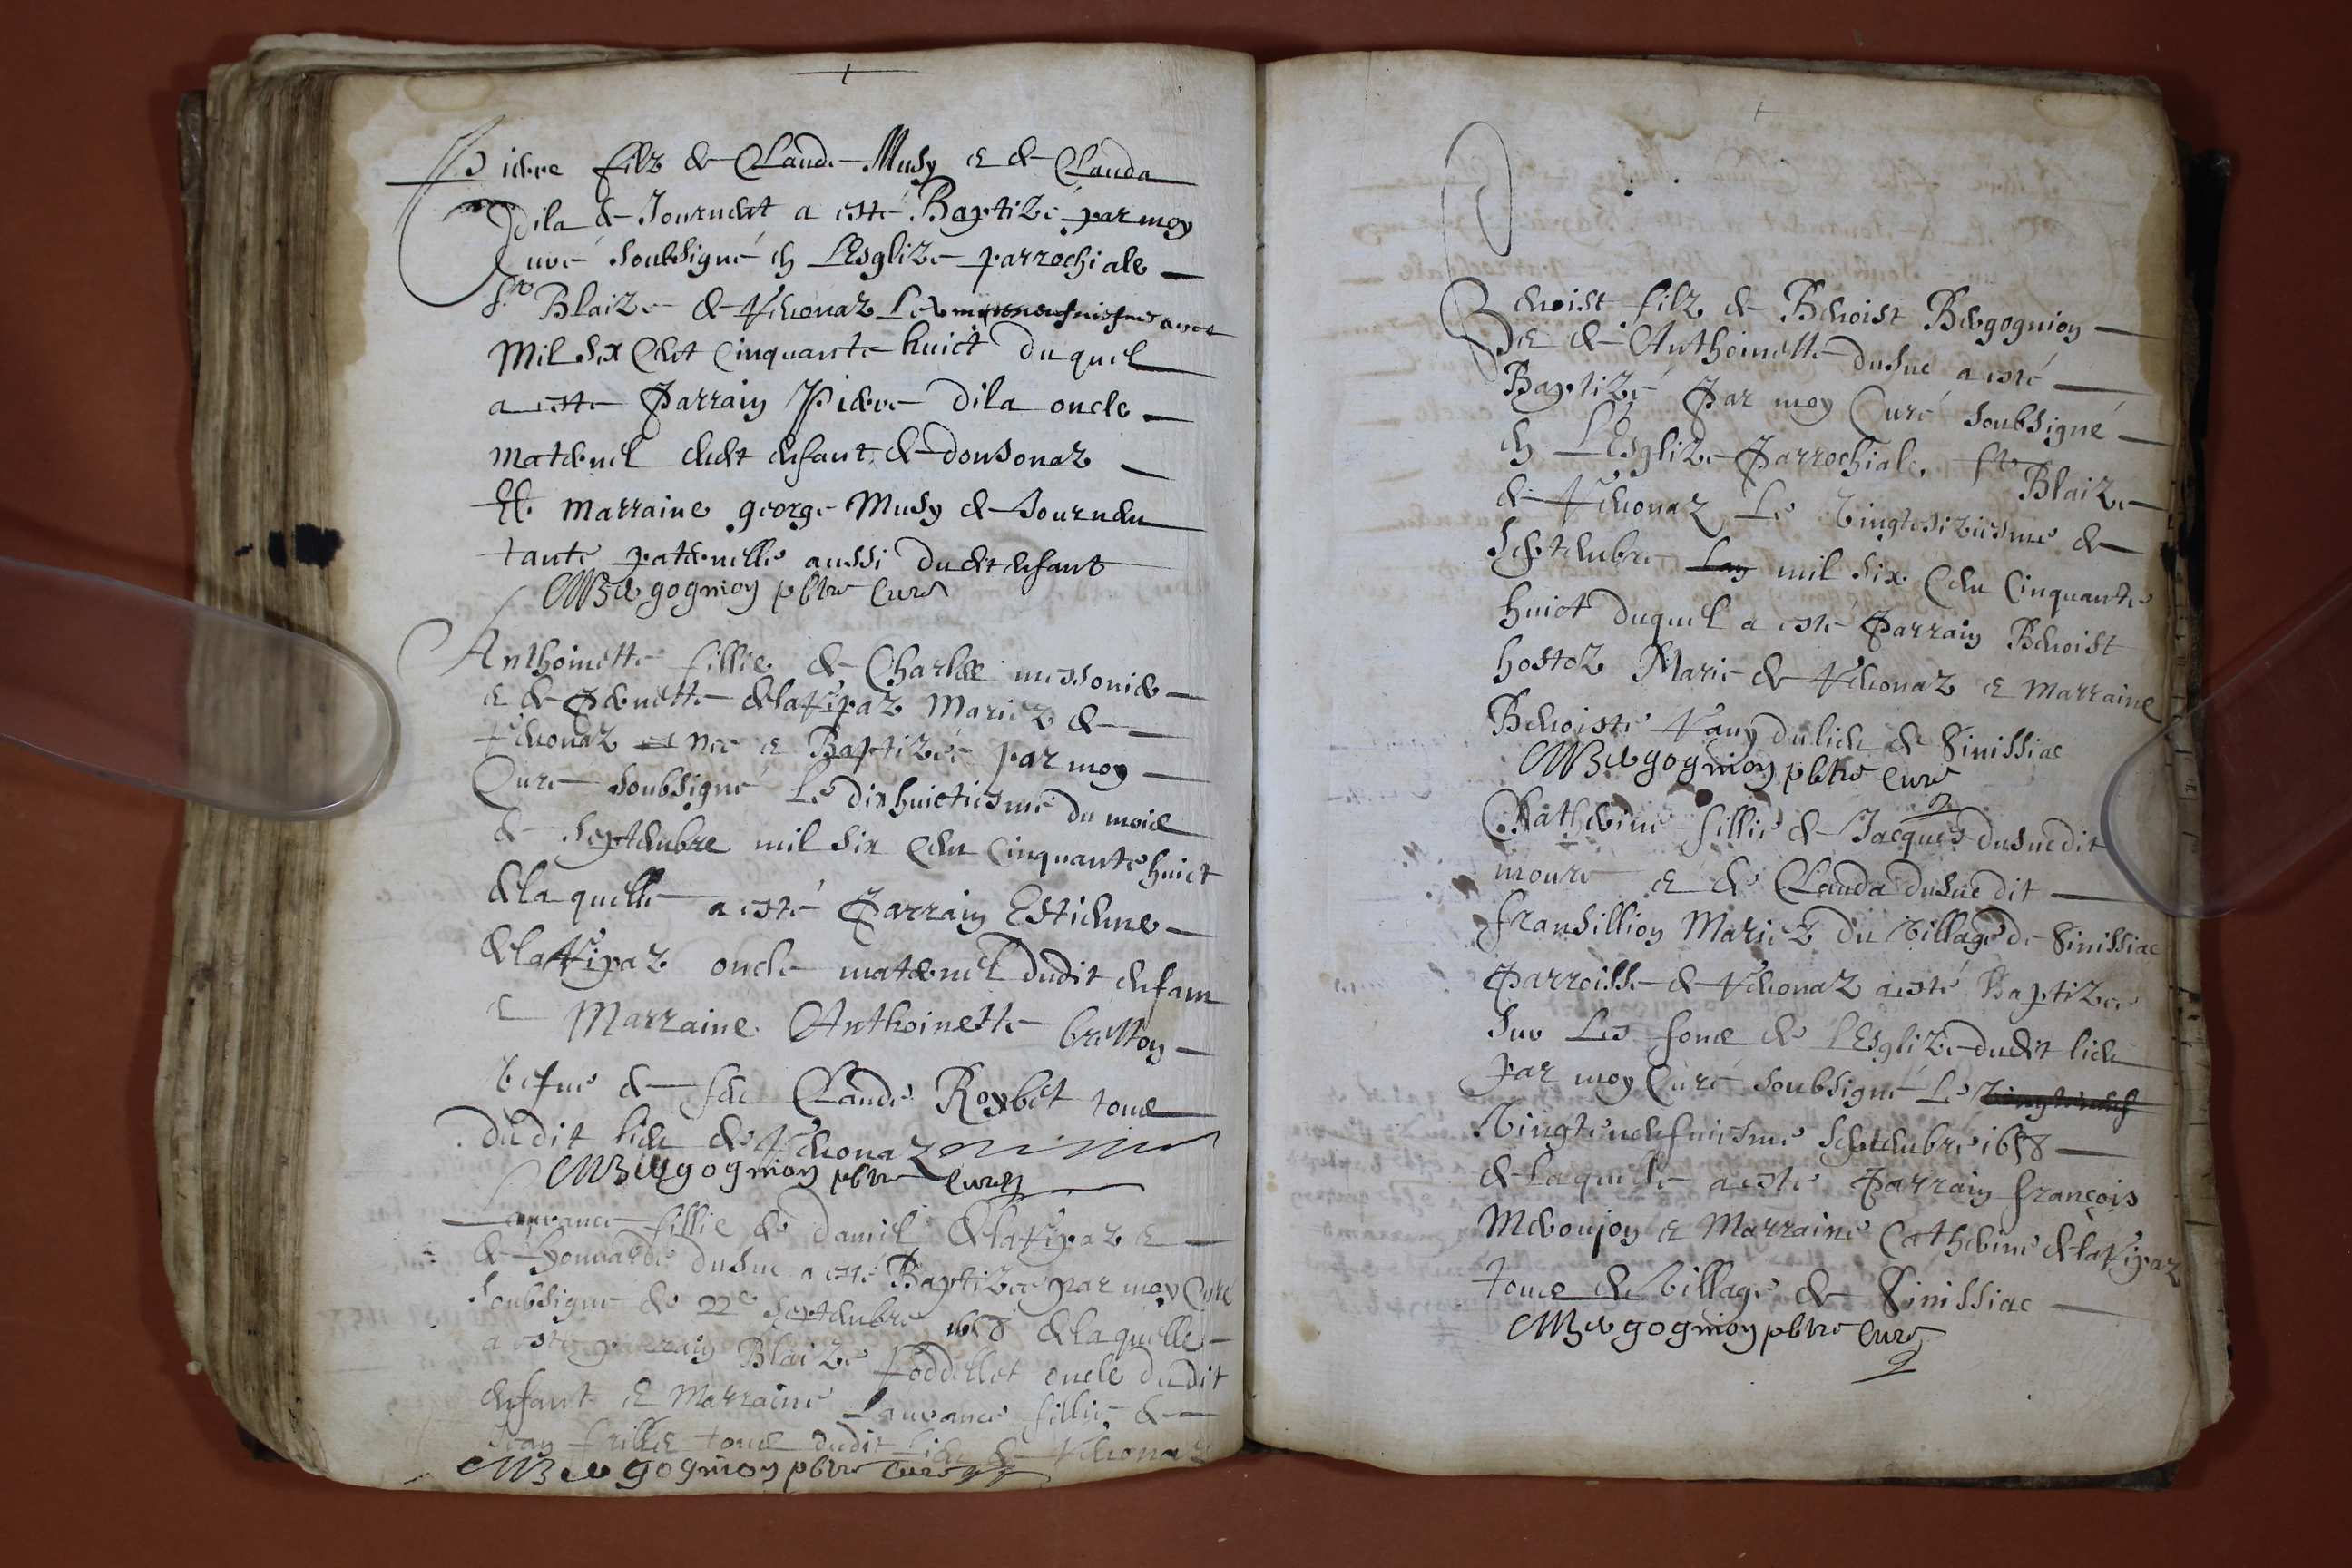 Pierre filz de Claude Musy et de Clauda
Dila de Journent a esté Baptizé par moy
Curé soubsigné en L'Esglize parrochiale
St Blaize de Venonaz Le
mil six cent cinquante huict du quel
a este Parrain Pierre dila oncle
maternel dudit enfant de donsonaz
Et marraine george Musy de Journen
tante paternelle aussi dudit enfant
Bergognion pbtre Curé
Anthoinette fillie de Charles messonier
et de Pernette delaVipaz Mariez de
Venonaz née et Baptizée par moy
Curé soubsigné Le dixhuictiesme du mois
de septembre mil six cen cinquante huict
delaquelle a esté Parrain Estienne
delaVipaz oncle maternel dudit enfant
et Marraine Anthoinette bretton
vefue de feu Claude Roybet tous
dudit lieu de Venonaz
Bergognion pbtre Curé
Laurance fillie de daniel delaVipaz et
de honnarde dusuc a esté Baptizée par moy Curé
soubsigné le 22e septembre 1658 delaquelle
a esté parrain Blaize Voddellet oncle dudit
enfant et Marraine Laurance fillie de
Jean tous dudit lieu de Venonaz
Bergognion pbtre Curé
Benoist filz de Benoist Bergognion
et de Anthoinette dusuc a esté
Baptizé Par moy Curé soubsigné
en L'Esglize Parrochiale St Blaize
de Venonaz Le vingtesiziesme de
septembre Lan mil six cen cinquante
huict duquel a esté Parrain Benoist
hostoz Marié de Venonaz et marraine
Benoiste Vany du lieu de Sinissiac
Bergognion pbtre Curé
Catherine fillie de Jacques dusuc dit
moure et de Clauda dusuc dit
fransillion Mariez du village de Sinissiac
Parroisse de Venonaz a esté Baptizée
sur Les fons de L'Esglize dudit lieu
par moy Curé soubsigné Le vingtneuf
vingteneufuiesme septembre 1658
delaquelle a esté Parrain françois
Meroujon et Marraine Catherine delaVipaz
tous de village de Sinissiac
Bergognion pbtre Curé